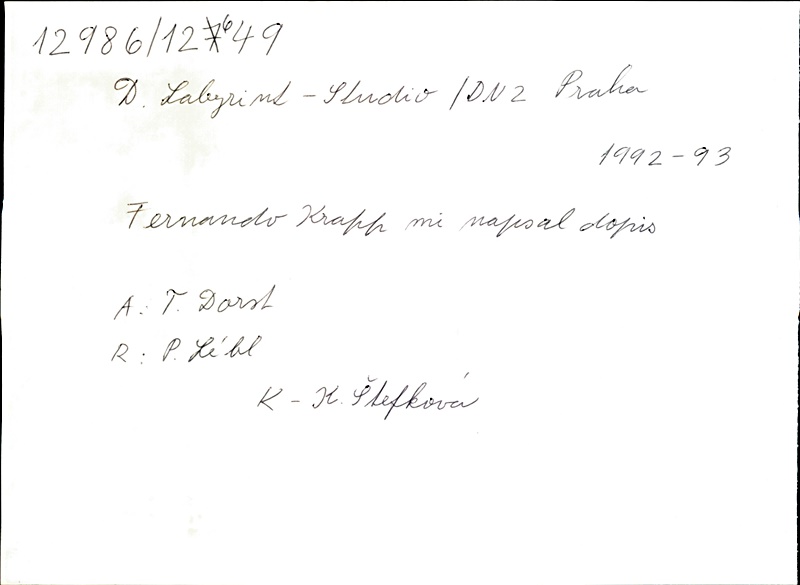 12986/12649
D. Labyrint - Studio /DNZ Praha
1992-93
Fernando Krapp mi napsal dopis
A: T. Dorst
R: P. Lébl
K - K. Štefková